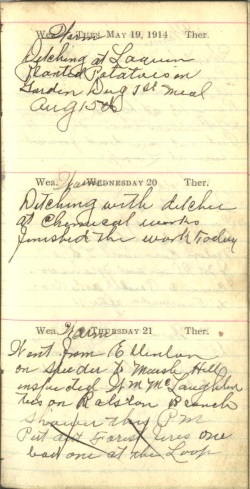 Wea. Warm TUES. MAY 19, 1914 Ther.
Ditching at Laquin
Planted Potatoes in
Garden Dug 1st meal
Aug 15th
Wea. Warm WEDNESDAY 20 Ther.
Ditching with ditcher
at Chemical works
finished the work today
Wea. Warm THURSDAY 21 Ther.
Went from Ellenton
on Speeder to Marsh Hill
inspected W M McLaughlin
ties on Ralston Branch
Shower this P M
Put out Forest Fires one
bad one at the Loop